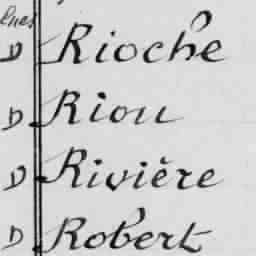 D Rioche
D Riou
D Rivière
D Robert